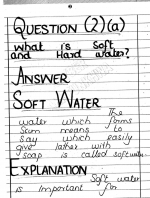 QUESTION (2)(a)
what is Soft
and Hard water?
ANSWER
SOFT WATER
The
water which forms
Scum means to
say which easily
give lather with
soap is called soft water.
EXPLANATION
Soft water
is important for